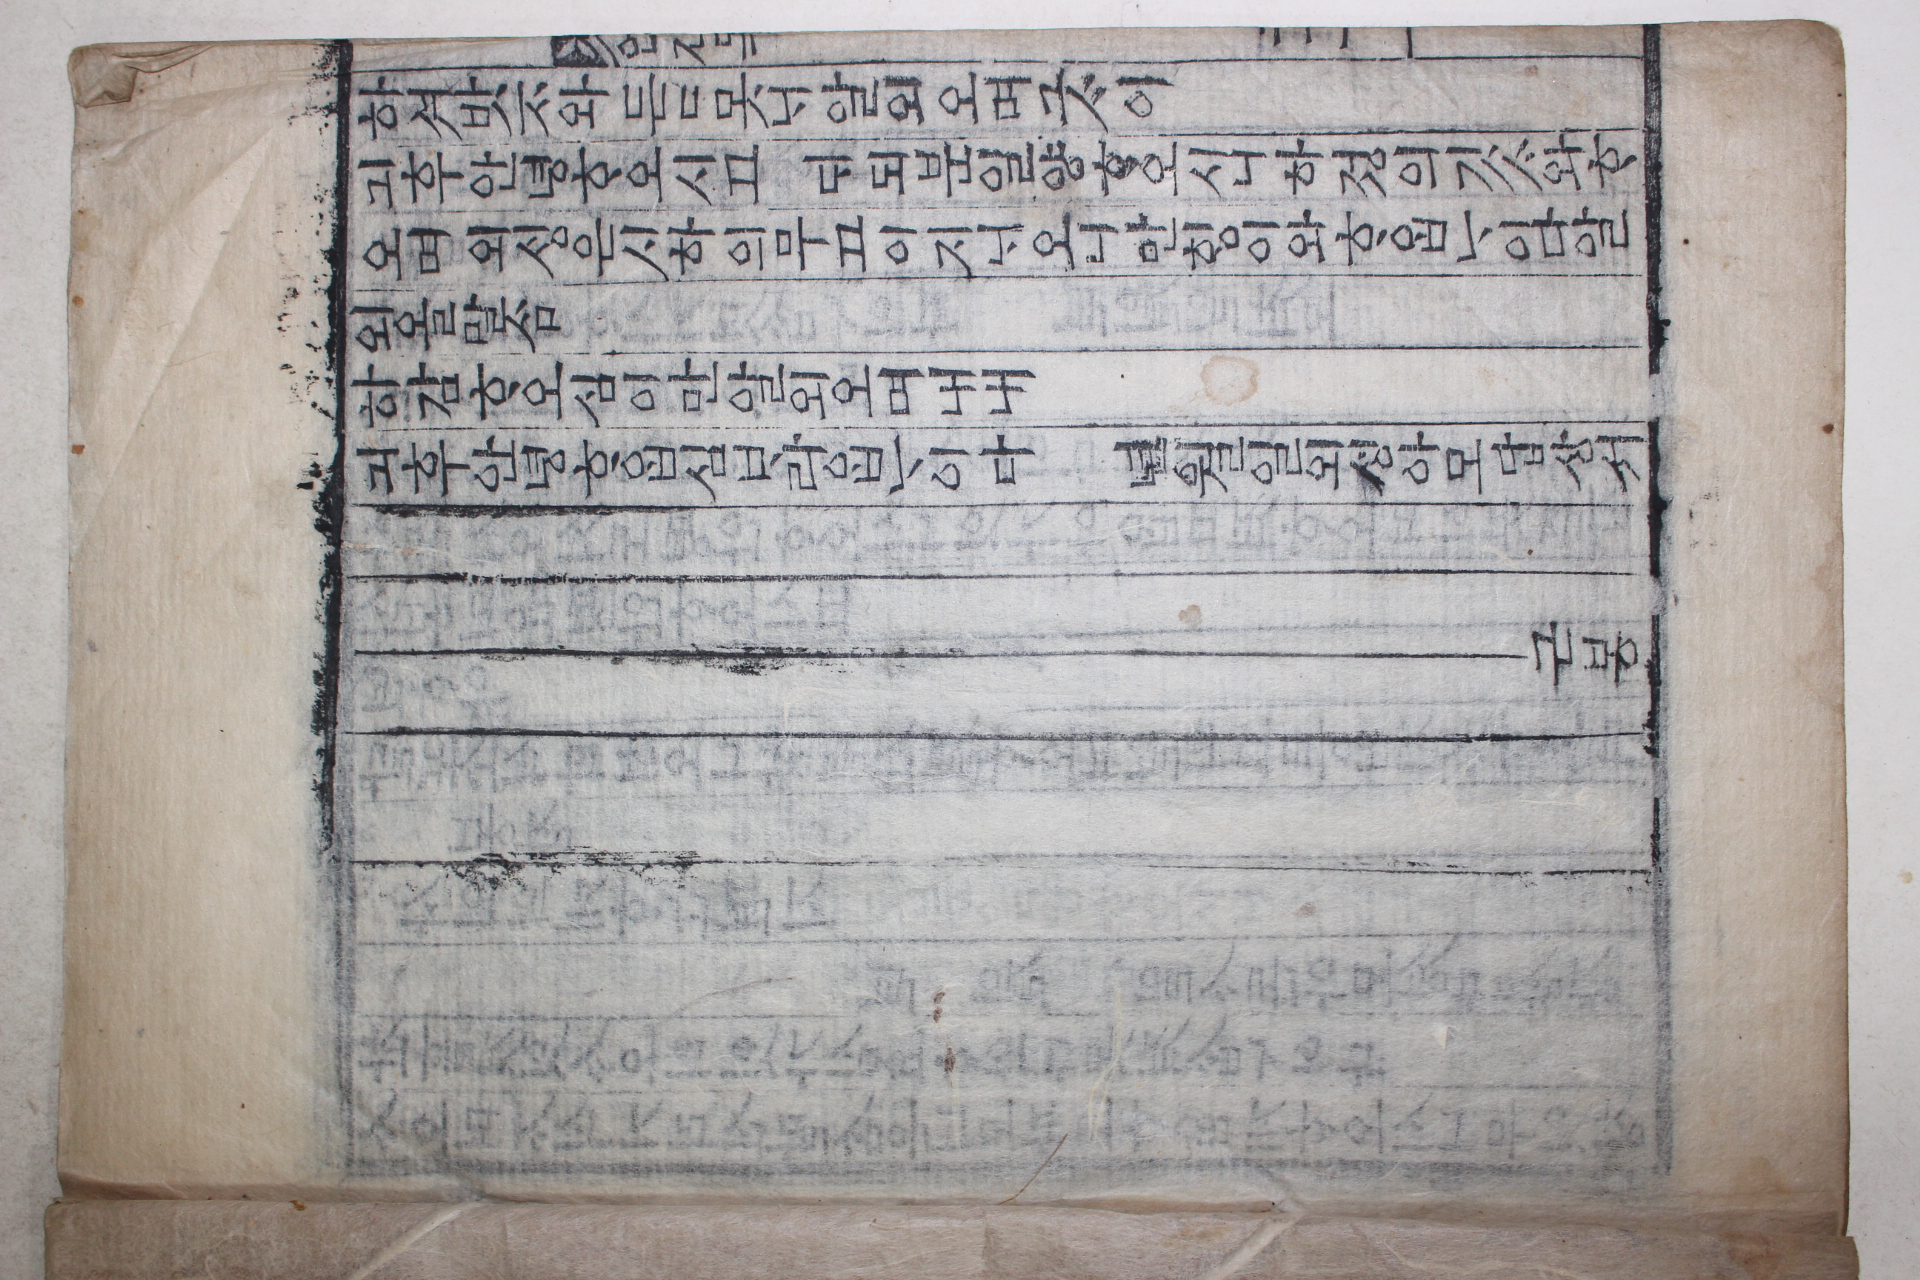 하셔밧ᄌᆞ와 든든못ᄂᆡ알외오며그ᄉᆞ이
긔후안녕ᄒᆞ오시고 일양ᄒᆞ오시니하졍의깃ᄉᆞ와ᄒᆞ
오며 외ᄉᆡᆼ은시하의무고이지ᄂᆡ오니만ᄒᆡᆼ이와ᄒᆞ옵ᄂᆞ이다알
외올말ᄉᆞᆷ
하감ᄒᆞ오심이만알외오며내내
긔후안녕ᄒᆞ옵심ᄇᆞ라옵ᄂᆞ이다 월일외ᄉᆡᆼ아모답샹셔